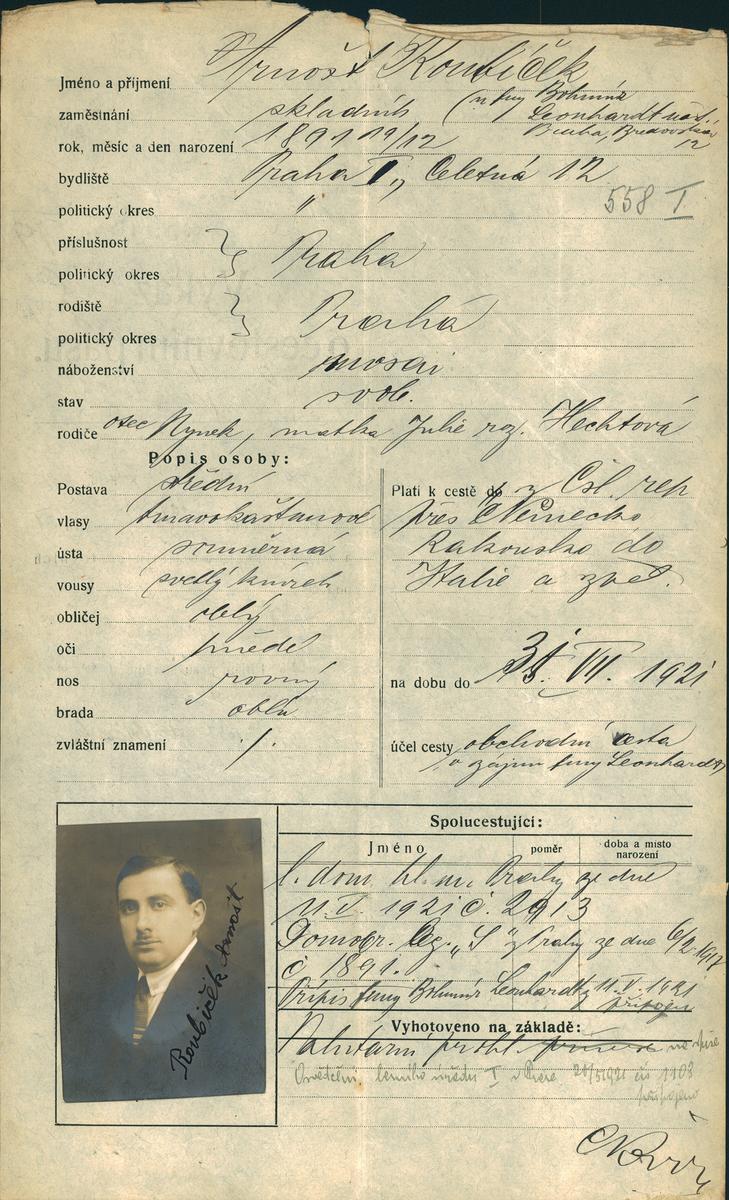 Jméno a příjmení Arnošt Roubíček
zaměstnání skladník (u fmy Bohumír
Leonhardt nást.
Praha, Bredovská
12
rok, měsíc a den narození 1891 19/12
bydliště Praha I., Celetná 12
politický okres "
558 I
příslušnost } Praha
politický okres
rodiště } Praha
politický okres
náboženství mosai
stav svob.
rodiče otec Hynek, matka Julie roz. Hechtová
Popis osoby:
Postava střední
vlasy tmavokaštanové
ústa souměrná
vousy světlý knírek
obličej oblý
oči hnědé
nos rovný
brada oblá
zvláštní znamení ./.
Platí k cestě do z Čsl. rep
přes Německo
Rakousko do
Italie a zpět.
na dobu do 31. VII. 1921
účel cesty obchodní cesta
v zájmu fmy Leonhardt
Spolucestující:
Jméno poměr doba a místo narození
l. dom. hl. m. Prahy ze dne
11. V. 1921 č. 2913
Domobr. leg. „S" z Prahy ze dne 6/2 1917
č 1891.
Přípis fmy Bohumír Leonhardt z 11. V. 1921
připojen
Vyhotoveno na základě:
Valutární prohl.
Osvědčení berního úřadu I v Praze 20/5 1921 čís 1108
připojeno
Roubíček Arnošt